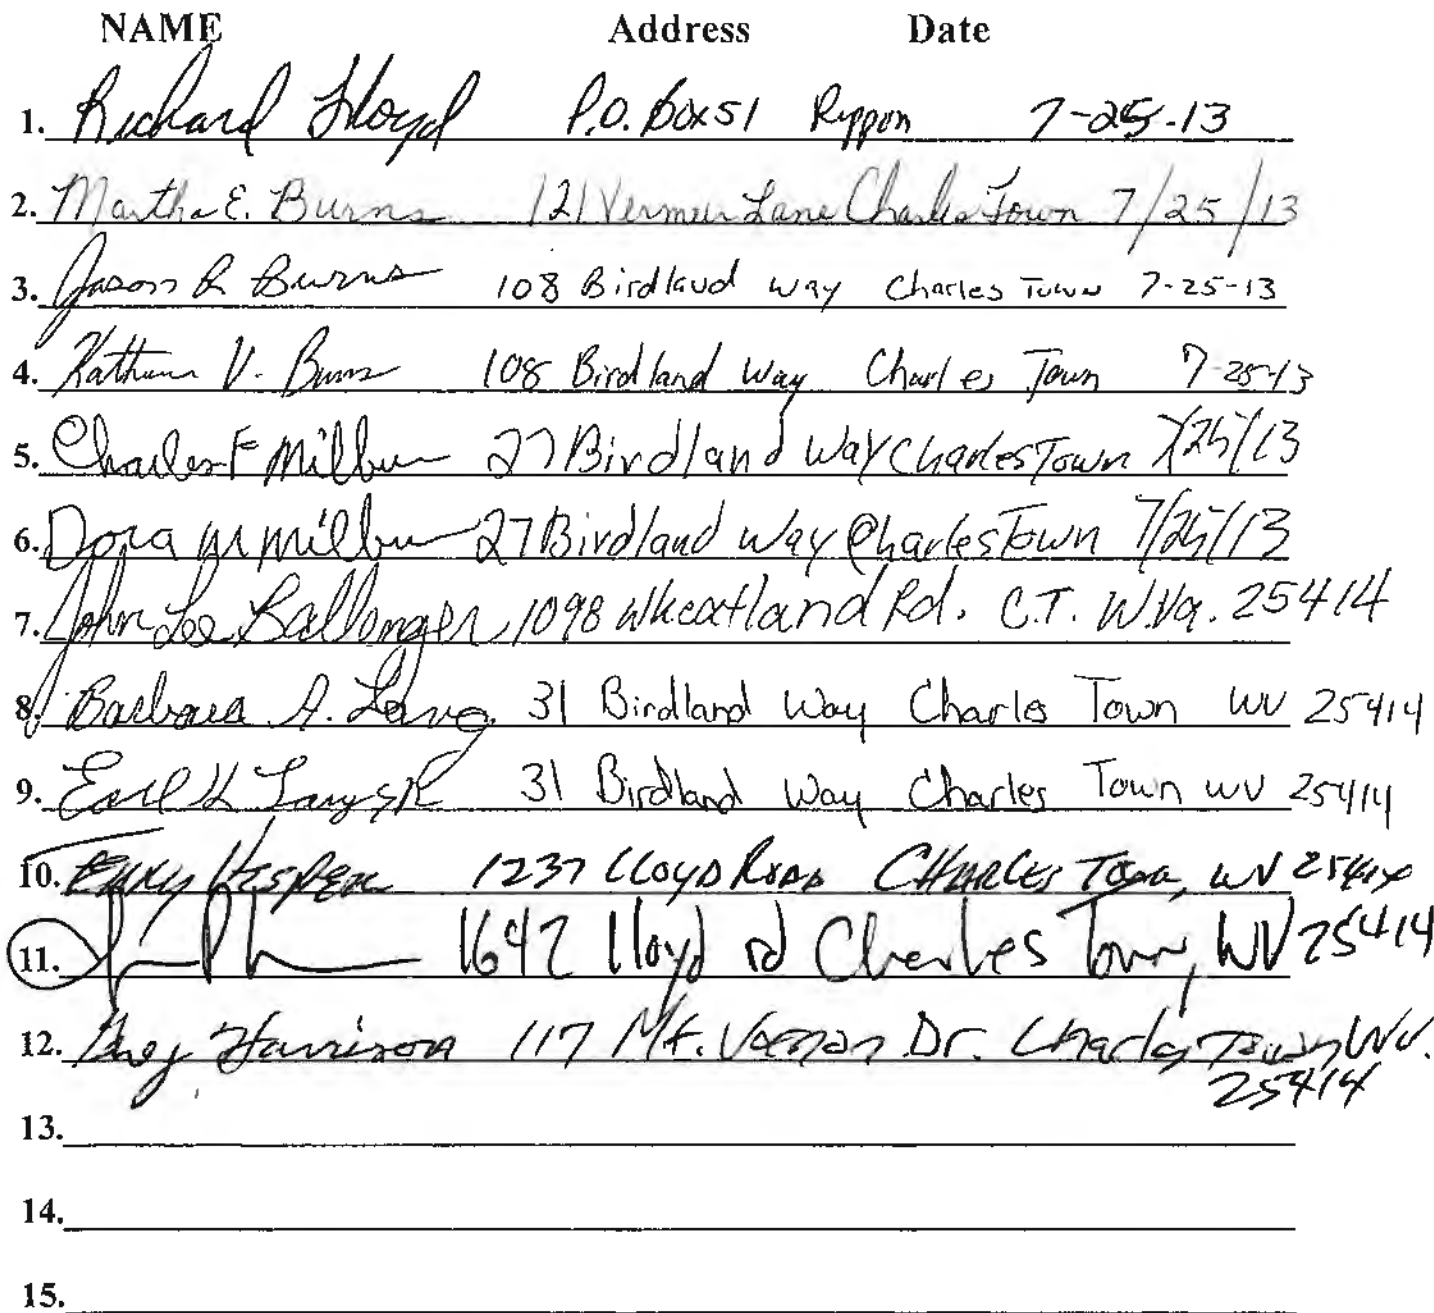 NAME Address Date
1. Richard Lloyd P.O. Box 51 Rippon 7-25-13
2. Martha E. Burns 121 Vermeer Lane Charles Town 7/25/13
3. Jason R Burns 108 Birdland way Charles Town 7-25-13
4. V. Burns 108 Birdland Way Charles Town 7-25-13
5. Charles F Milbur 27 Birdland Way Charles Town 7/25/13
6. Dora M Milbur 27 Birdland Way Charles Town 7/25/13
7. John Lee Ballenger 1098 Wheatland Rd. C.T. W.Va. 25414
8. Barbara A. Lang 31 Birdland Way Charles Town WV 25414
9. Earl K Lang SR 31 Birdland Way Charles Town WV 25414
10. 1237 Lloyd Road Charles Town, WV 25414
11. 1642 Lloyd rd Charles Town, WV 25414
12. Greg Harrison 117 Mt. Vernon Dr. Charles Town WV.
25414
13.
14.
15.